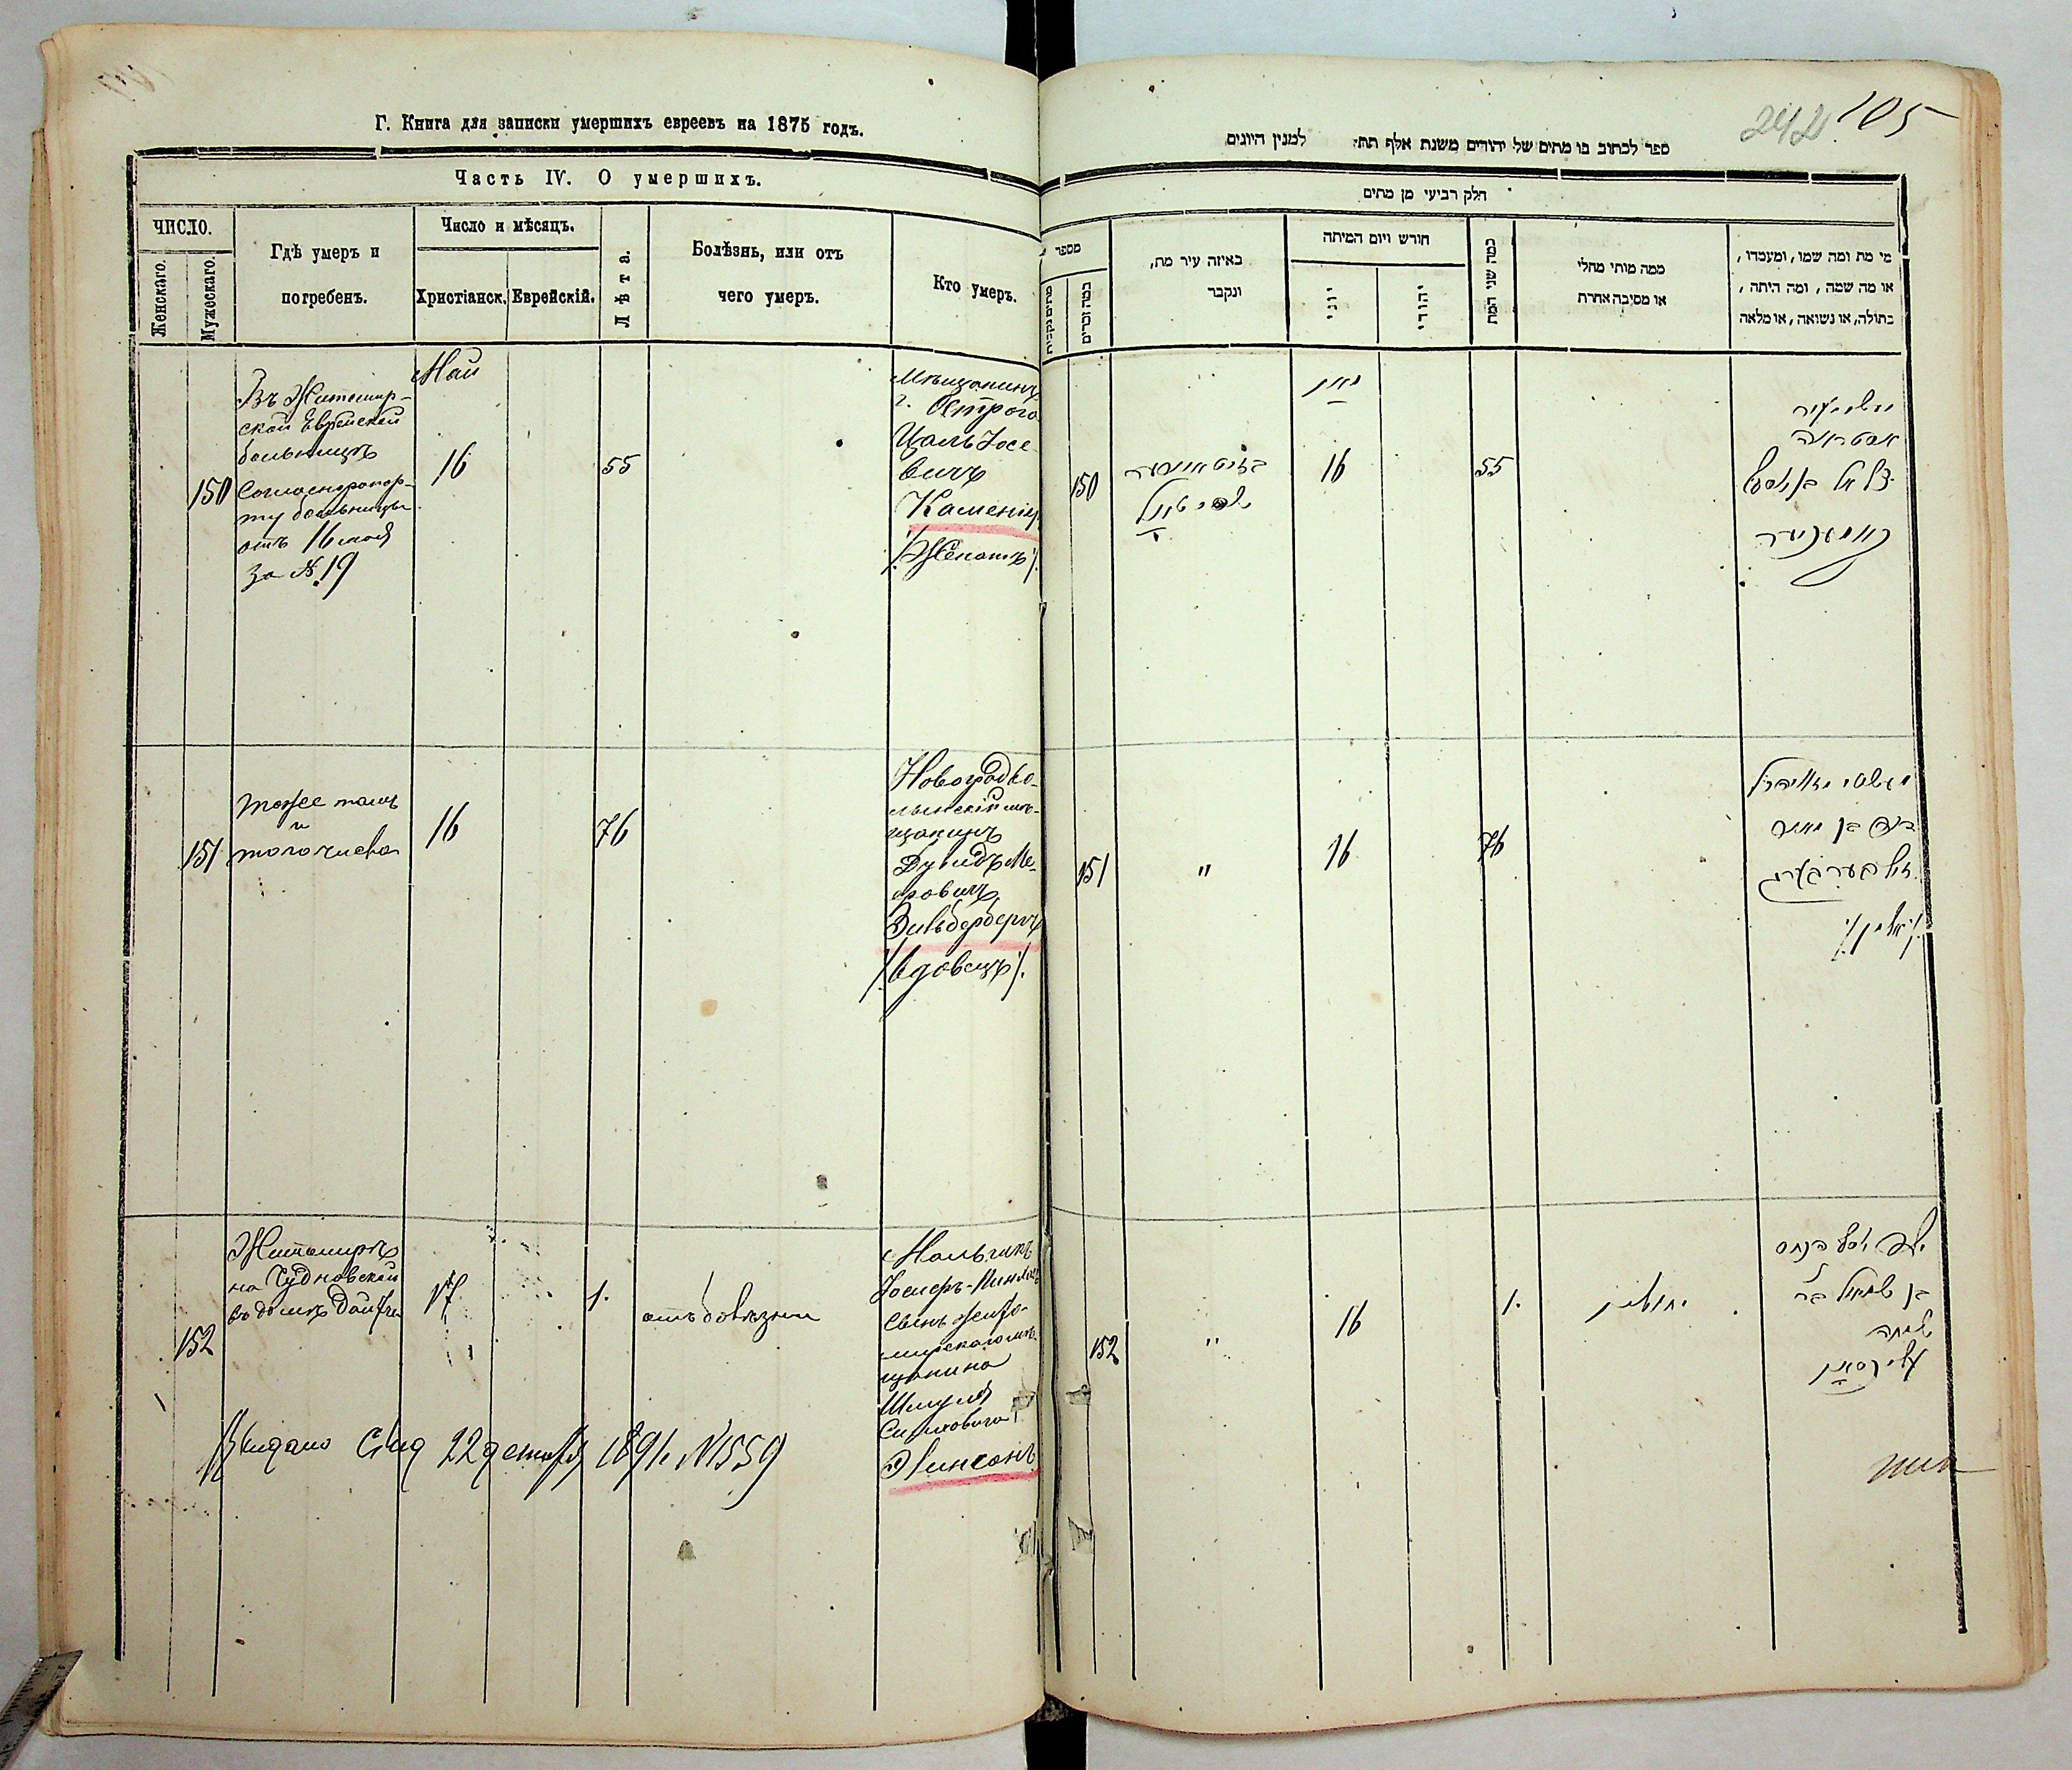 Г. Книга для записки умершихъ евреевъ на 1875 годъ.
Часть IV. О умершихъ.
ЧИСЛО.
Женскаго.
Мужескаго.
Гдѣ умеръ и
погребенъ.
Число и мѣсяцъ.
Христіанск.
Еврейскій.
Лѣта.
Болѣзнь, или отъ
чего умеръ.
Кто умеръ.
150
Въ Житомир-
ской Еврейской
больницѣ
Согласно рапор-
ту больницы
отъ 16 мая
За № 19
Май
16
55
Мѣщанинъ
г. Острога
Цаль Іосе
вичъ
Каменіц
/Женатъ/.
151
тоже тамъ
и
того числа
16
76
Новоградво-
лынскій мѣ-
щанинъ
Дувидъ Ме-
еровичъ
Зильбербергъ
/вдовецъ/.
152
Житомиръ
на Чудновской
въ домѣ
17
1.
отъ болѣзни
Мальчикъ
Іосифъ-Пинхасъ
сынъ жито-
мирскаго мѣ-
щанина
Шмуля
Симховича
Выдано Свид 22 декабря 1891 № 1559
242 105
ספר לכתוב בו מתים של יהודים משנת אלף תת׳ למנין היונים
חלק רביעי מן מתים
מספר
כמה זכרים
באיזה עיר מת,
ונקבר
חודש ויום המיתה
יוני
יהודי
כמה שני המת
ממה מותי מחלי
או מסיבה אחרת
מי מת ומה שמו, ומעמדו,
או מה שמה, ומה היתה,
בתולה, או נשואה, או מלאה
150
16
55
151
"
16
76
דוד בן מאיר
זילבערבערג
/אלמן/
152
"
16
1.
ילד יוסף פנחס
בן שמואל בר
שמחה